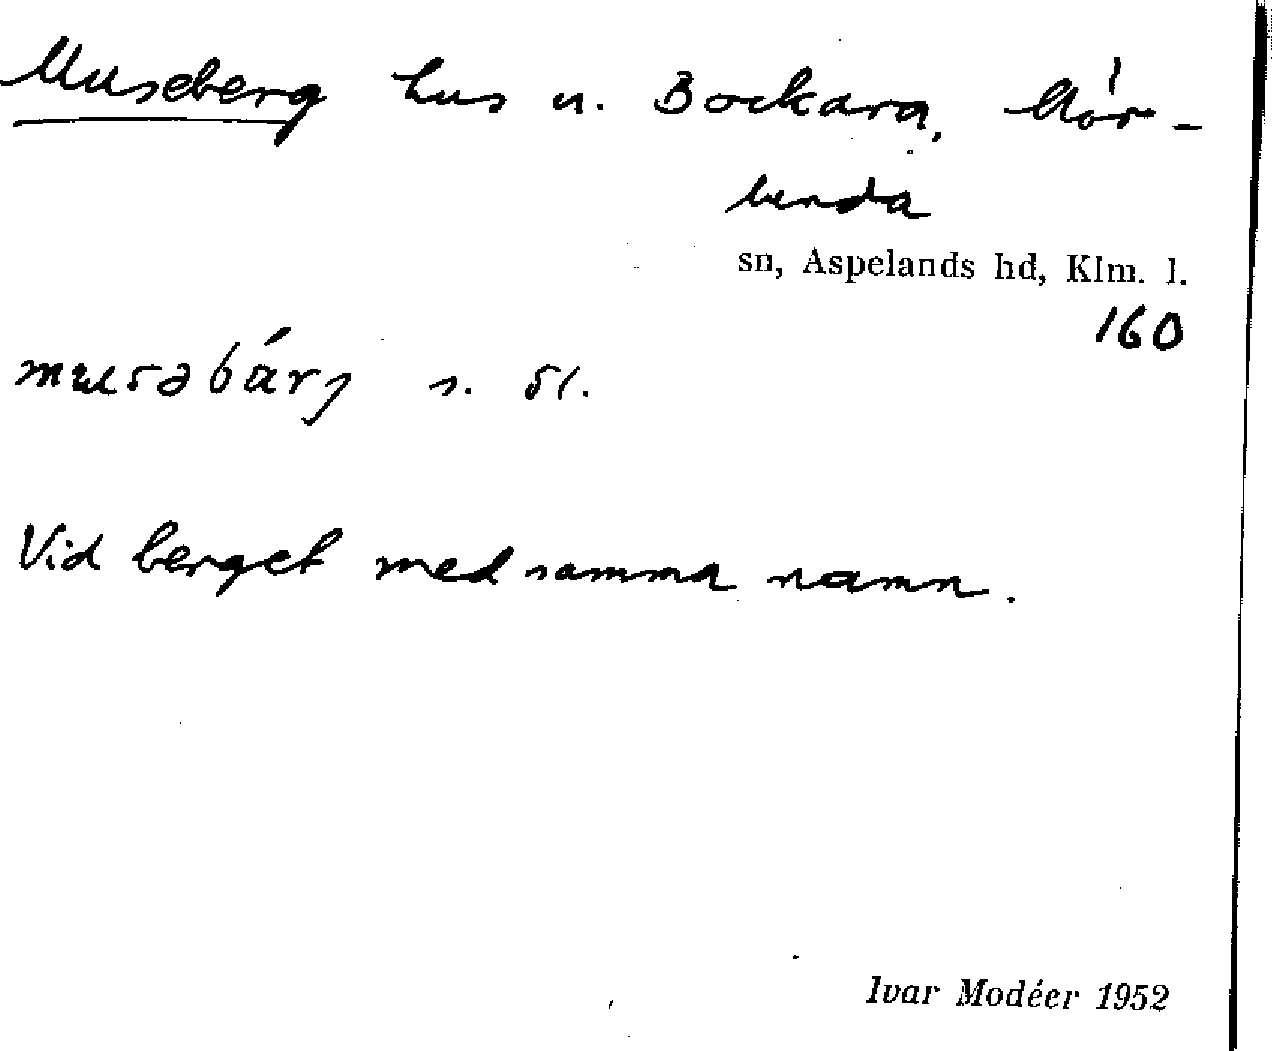 Museberg hus u. Bockara, Mör-
lunda
sn, Aspelands hd, Klm. l.
160
s. st.
Vid berget med samma namn.
Ivar Modéer 1952